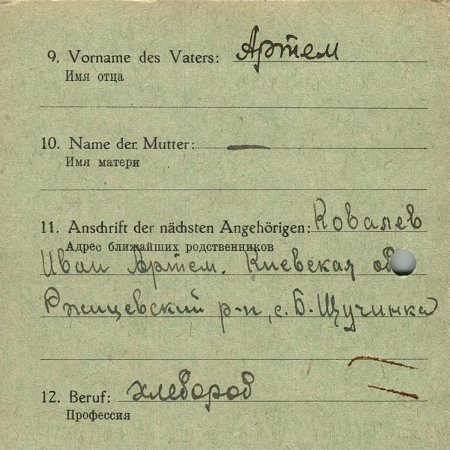 9. Vorname des Vaters: Артем
Имя отца
10. Name der Mutter: —
Имя матери
11. Anschrift der nächsten Angehörigen: Ковалев
Адрес ближайших родственников
Иван Артем. Киевская об
Ржищевский р-н, с. Б. Щучинка
12. Beruf: хлебороб
Профессия